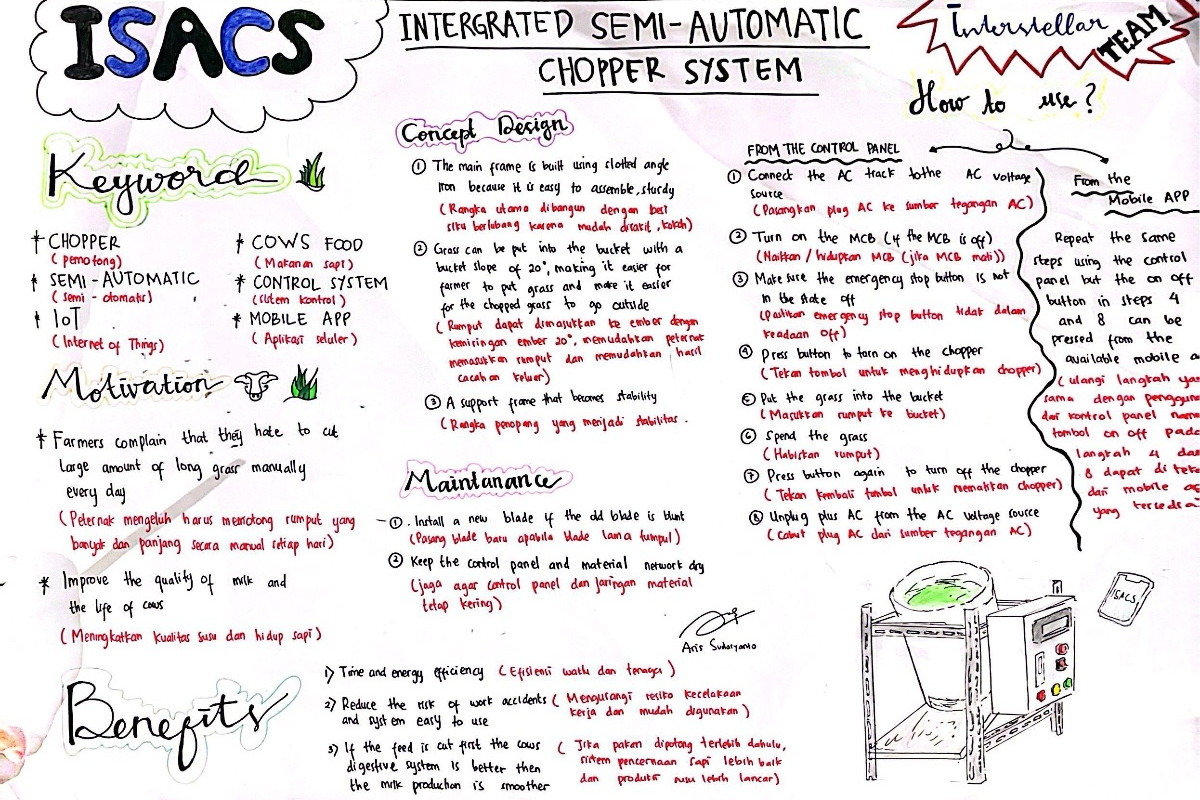 ISACS
INTERGRATED SEMI-AUTOMATIC
CHOPPER SYSTEM
Interstellar
TEAM
Keyword
* CHOPPER
(pemotong)
* SEMI-AUTOMATIC
(semi-otomatis)
* IoT
(Internet of Things)
* COWS FOOD
(Makanan sapi)
* CONTROL SYSTEM
(sistem kontrol)
* MOBILE APP
(Aplikasi seluler)
Motivation
* Farmers complain that they hate to cut
large amount of long grass manually
every day
(Peternak mengeluh harus memotong rumput yang
banyak dan panjang secara manual setiap hari)
* Improve the quality of milk and
the life of cows
(Meningkatkan kualitas susu dan hidup sapi)
Concept Design
① The main frame is built using slotted angle
iron because it is easy to assemble, sturdy
(Rangka utama dibangun dengan besi
siku berlubang karena mudah dirakit, kokoh)
② Grass can be put into the bucket with a
bucket slope of 20°, making it easier for
farmer to put grass and make it easier
for the chopped grass to go outside
(Rumput dapat dimasukkan ke ember dengan
kemiringan ember 20°, memudahkan peternak
memasukkan rumput dan memudahkan hasil
cacahan keluar)
③ A support frame that becomes stability
(Rangka penopang yang menjadi stabilitas.
Maintanance
①. Install a new blade if the old blade is blunt
(Pasang blade baru apabila blade lama tumpul)
② Keep the control panel and material network dry
(jaga agar control panel dan jaringan material
tetap kering)
Aris Sudaryanto
How to use?
FROM THE CONTROL PANEL
① Connect the AC track to the AC voltage
source
(Pasangkan plug AC ke sumber tegangan AC)
② Turn on the MCB (if the MCB is off)
(Naikkan / hidupkan MCB (jika MCB mati))
③ Make sure the emergency stop button is not
in the state off
(Pastikan emergency stop button tidak dalam
keadaan off)
④ Press button to turn on the chopper
(Tekan tombol untuk menghidupkan chopper)
⑤ Put the grass into the bucket
(Masukkan rumput ke bucket)
⑥ Spend the grass
(Habiskan rumput)
⑦ Press button again to turn off the chopper
(Tekan kembali tombol untuk mematikan chopper)
⑧ Unplug plus AC from the AC voltage source
(Cabut plug AC dari sumber tegangan AC)
From the
Mobile APP
Repeat the same
steps using the control
panel but the on off
button in steps 4
and 8 can be
pressed from the
available mobile a
(ulangi langkah ya
sama dengan penggun
dari kontrol panel nam
tombol on off pada
langkah 4 da
8 dapat di teka
dari mobile ap
yang tersedia
ISACS
Benefits
1) Time and energy efficiency (Efisiensi waktu dan tenaga)
2) Reduce the risk of work accidents (Mengurangi resiko kecelakaan
and system easy to use kerja dan mudah digunakan)
3) If the feed is cut first the cows (Jika pakan dipotong terlebih dahulu,
digestive system is better then sistem pencernaan sapi lebih baik
the milk production is smoother dan produksi susu lebih lancar)